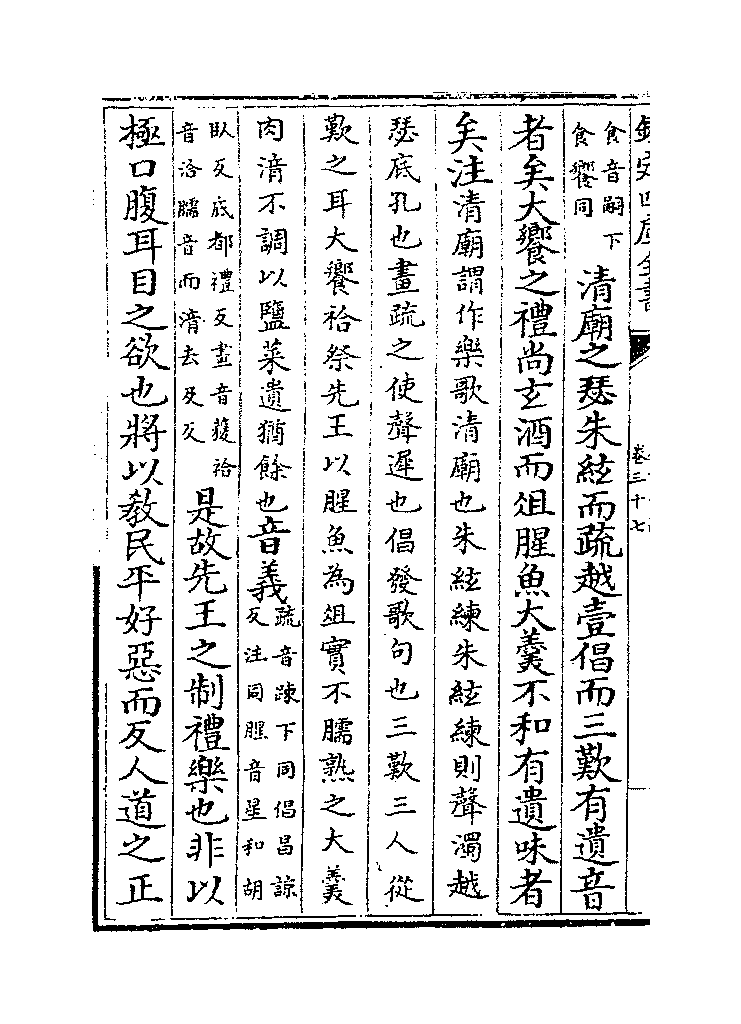 欽定四庫全書
卷三十七
食音嗣下
食饗同
清廟之瑟朱絃而疏越壹倡而三歎有遺音
者矣大饗之禮尚玄酒而俎腥魚大羹不和有遺味者
矣注清廟謂作樂歌清廟也朱絃練朱絃練則聲濁越
瑟底孔也畫疏之使聲遲也倡發歌句也三歎三人從
歎之耳大饗祫祭先王以腥魚為俎實不臑熟之大羹
肉湆不調以鹽菜遺猶餘也音義
疏音踈下同倡昌諒
反注同腥音星和胡
臥反底都禮反畫音獲祫
音洽臑音而湆去及反
是故先王之制禮樂也非以
極口腹耳目之欲也將以教民平好惡而反人道之正